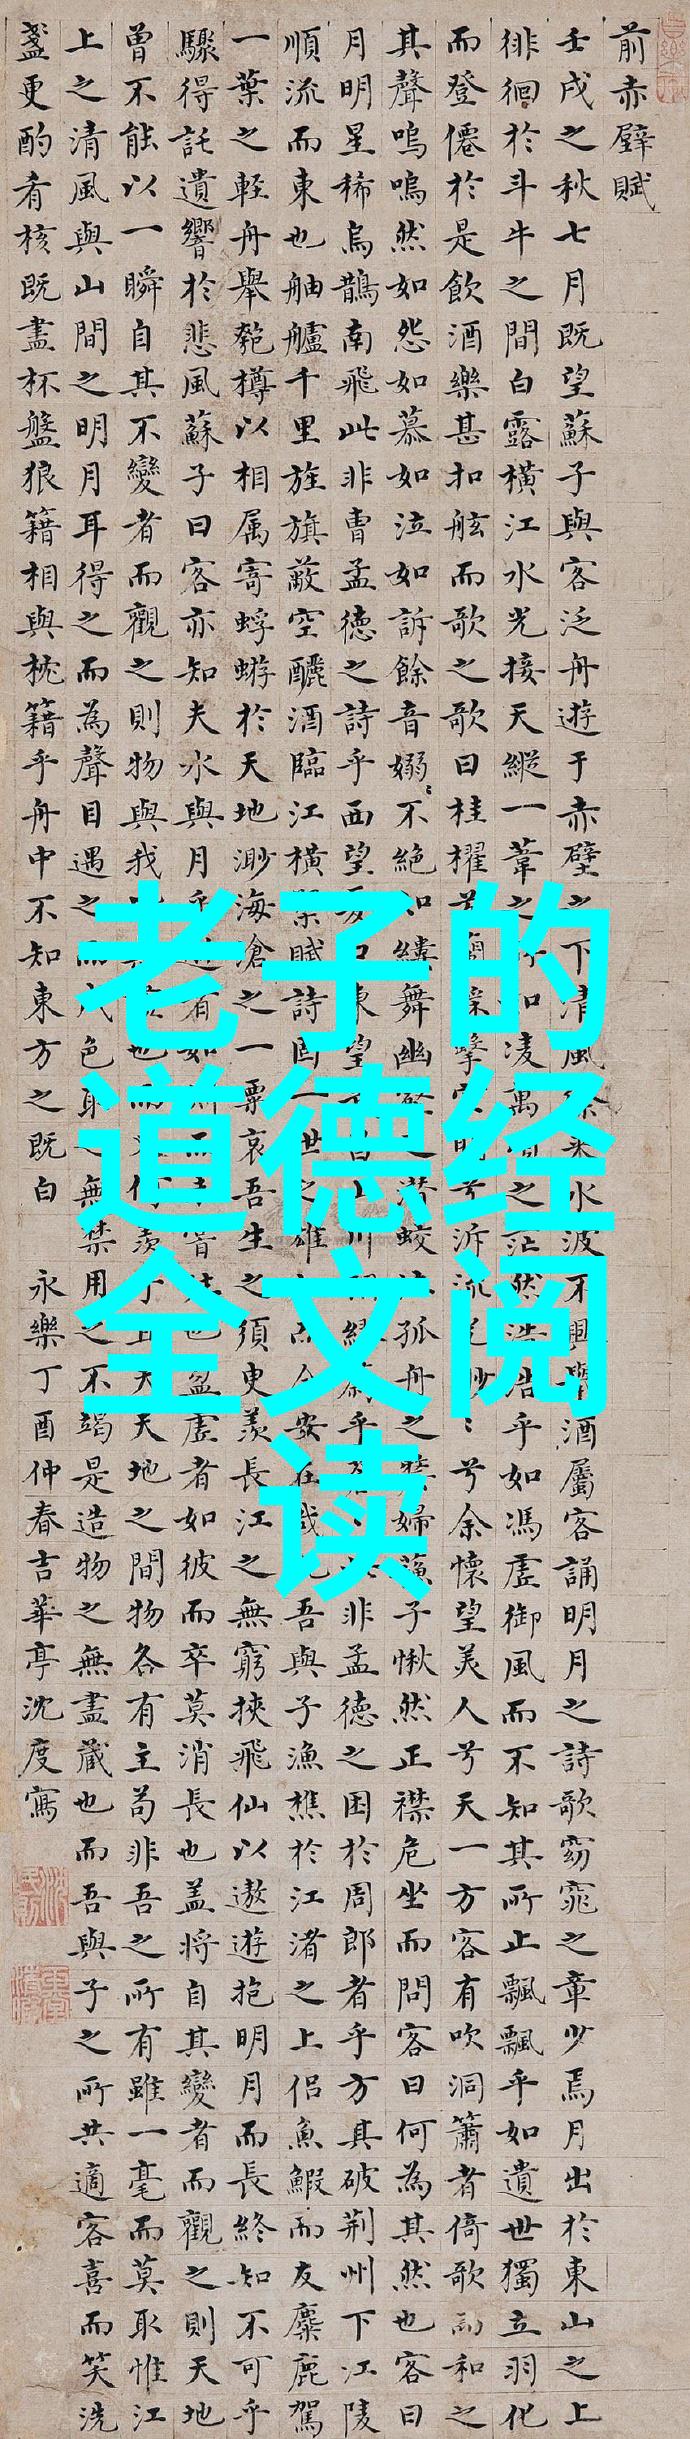 老子的
道德经
全文阅
读
前赤壁賦
壬戌之秋七月既望蘇子與客泛舟遊于赤壁之下清風徐來水波不興舉酒屬客誦明月之詩歌窈窕之章少焉月出於東山之上
徘徊於斗牛之間白露橫江水光接天縱一葦之所如凌萬頃之茫然浩浩乎如馮虛御風而不知其所止飄飄乎如遺世獨立羽化
而登僊於是飲酒樂甚扣舷而歌之歌曰桂櫂兮蘭槳擊空明兮泝流光渺〻兮余懷望美人兮天一方客有吹洞簫者倚歌而和之
其聲嗚嗚然如怨如慕如泣如訴餘音嫋〻不絕如縷舞幽壑之潛蛟泣孤舟之嫠婦蘇子愀然正襟危坐而問客曰何為其然也客曰
月明星稀烏鵲南飛此非曹孟德之詩乎西望夏口東望武昌山川相繆鬱乎蒼〻此非孟德之困於周郎者乎方其破荊州下江陵
順流而東也舳艫千里旌旗蔽空釃酒臨江橫槊賦詩固一世之雄也而今安在哉況吾與子漁樵於江渚之上侶魚鰕而友麋鹿駕
一葉之輕舟舉匏樽以相属寄蜉蝣於天地渺海滄之一粟哀吾生之須臾羨長江之無窮挾飛仙以遨遊抱明月而長終知不可乎
驟得託遺響於悲風蘇子曰客亦知夫水與月乎逝者如斯而未嘗往也盈虛者如彼而卒莫消長也蓋將自其變者而觀之則天地
曾不能以一瞬自其不變者而觀之則物與我皆無盡也而又何羨乎且夫天地之間物各有主苟非吾之所有雖一毫而莫取惟江
上之清風與山間之明月耳得之而為聲目遇之而成色取之無禁用之不竭是造物之無盡藏也而吾與子之所共適客喜而笑洗
盞更酌肴核既盡杯盤狼籍相與枕籍乎舟中不知東方之既白 永樂丁酉仲春吉華亭沈度寫